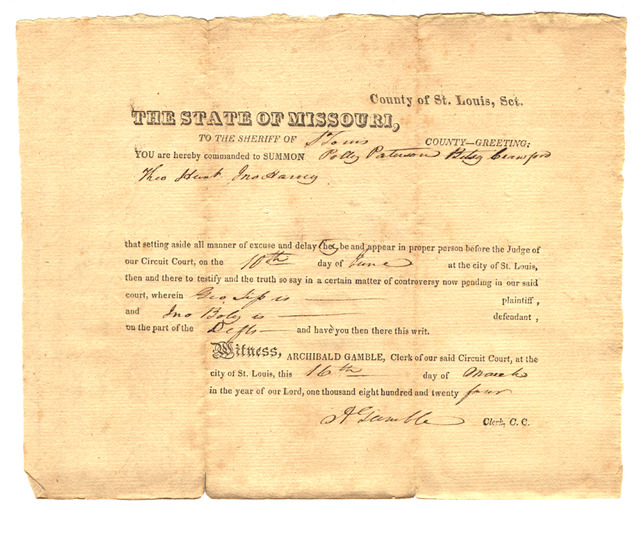 County of St. Louis, Sct.
THE STATE OF MISSOURI,
TO THE SHERIFF OF St Louis COUNTY—GREETING:
YOU are hereby commanded to SUMMON Polly Paterson Betsy Crawford
Theo Hunt Jno Haney
that setting aside all manner of excuse and delay they be and appear in proper person before the Judge of
our Circuit Court, on the 10th day of June at the city of St. Louis,
then and there to testify and the truth so say in a certain matter of controversy now pending in our said
court, wherein Geo is — plaintiff,
and Jno is — defendant,
on the part of the Defts— and have you then there this writ.
Witness, ARCHIBALD GAMBLE, Clerk of our said Circuit Court, at the
city of St. Louis, this 16th day of March
in the year of our Lord, one thousand eight hundred and twenty four
A Gamble Clerk, C. C.